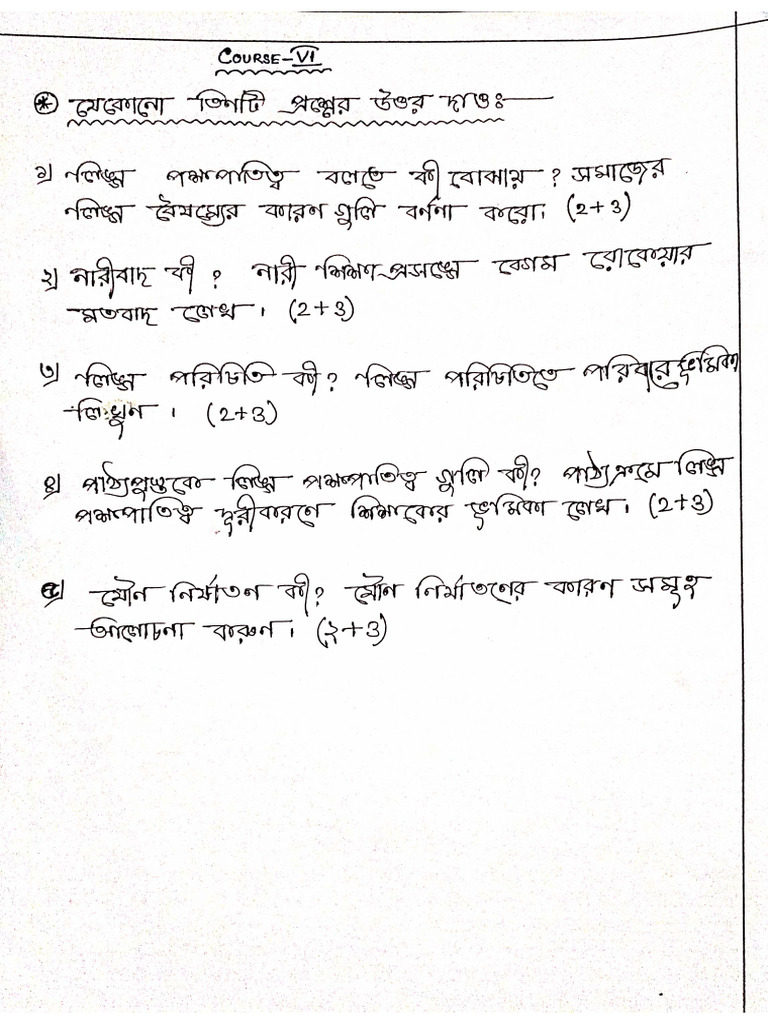 COURSE-VI
* যেকোনো তিনটি প্রশ্নের উত্তর দাওঃ—
১) লিঙ্গ পক্ষপাতিত্ব বলতে কী বোঝায় ? সমাজের
লিঙ্গ বৈষম্যের কারণ গুলি বর্ণনা করো। (2+3)
২) নারীবাদ কী ? নারী শিক্ষা প্রসঙ্গে বেগম রোকেয়ার
মতবাদ লেখ । (2+3)
৩) লিঙ্গ পরিচিতি কী? লিঙ্গ পরিচিতিতে পরিবারের ভূমিকা
লিখুন । (2+3)
৪) পাঠ্যপুস্তকে লিঙ্গ পক্ষপাতিত্ব গুলি কী? পাঠ্যক্রমে লিঙ্গ
পক্ষপাতিত্ব দূরীকরণে শিক্ষকের ভূমিকা লেখ । (2+3)
৫) যৌন নির্যাতন কী? যৌন নির্যাতনের কারণ সমূহ
আলোচনা করুন । (২+3)